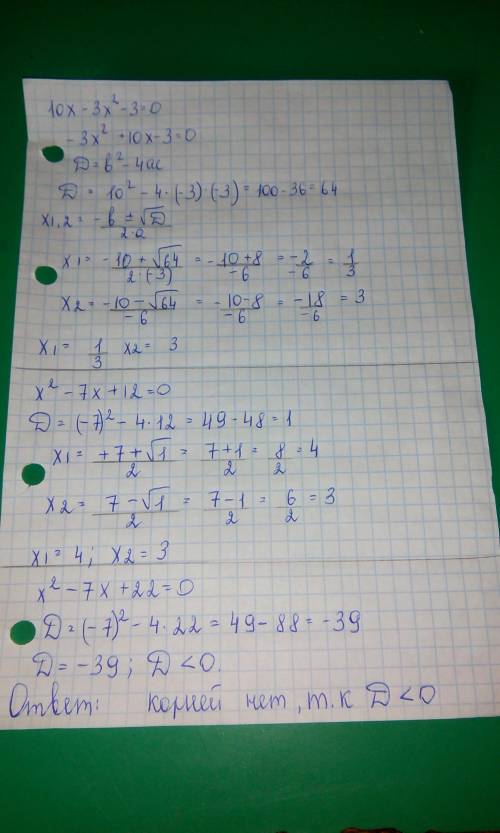 10x - 3x² - 3 = 0
-3x² + 10x - 3 = 0
D = b² - 4ac
D = 10² - 4·(-3)·(-3) = 100 - 36 = 64
x1,2 = -b ± √D / 2·a
x1 = -10 + √64 / 2·(-3) = -10+8 / -6 = -2 / -6 = 1/3
x2 = -10 - √64 / -6 = -10-8 / -6 = -18 / -6 = 3
x1 = 1/3 x2 = 3
x² - 7x + 12 = 0
D = (-7)² - 4·12 = 49 - 48 = 1
x1 = +7 + √1 / 2 = 7+1 / 2 = 8/2 = 4
x2 = 7 - √1 / 2 = 7-1 / 2 = 6/2 = 3
x1 = 4; x2 = 3
x² - 7x + 22 = 0
D = (-7)² - 4·22 = 49 - 88 = -39
D = -39; D < 0.
Ответ: корней нет, т.к D < 0